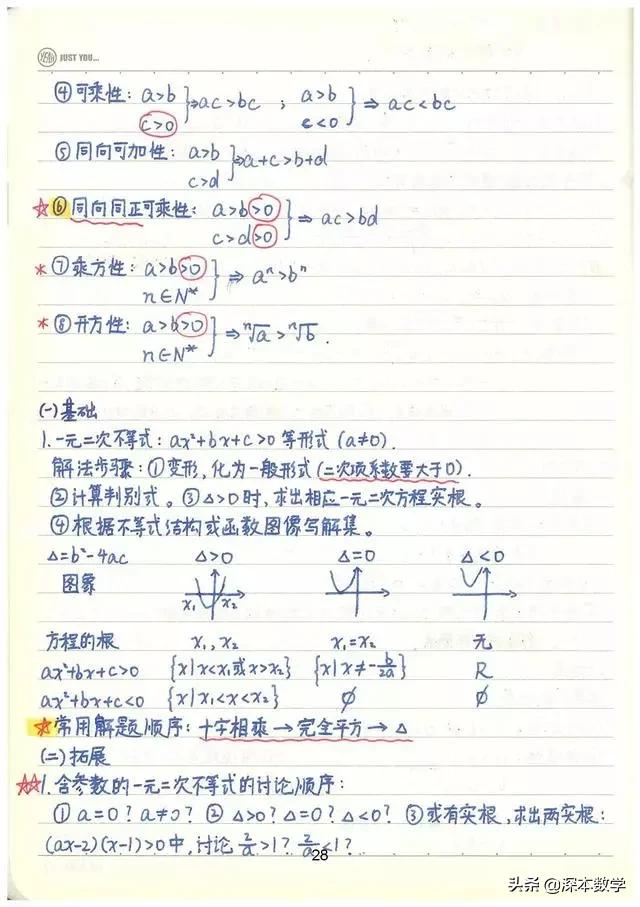 YEAH JUST YOU...
④可乘性: a>b
c>0 }⇒ac>bc ; a>b
c<0 }⇒ ac<bc
⑤同向可加性: a>b
c>d }⇒a+c>b+d
☆⑥同向同正可乘性: a>b>0
c>d>0 }⇒ ac>bd
*⑦乘方性: a>b>0
n∈N* }⇒ aⁿ>bⁿ
*⑧开方性: a>b>0
n∈N* }⇒ ⁿ√a>ⁿ√b.
(一)基础
1.一元二次不等式: ax²+bx+c>0 等形式 (a≠0).
解法步骤: ①变形,化为一般形式(二次项系数要大于0).
②计算判别式。③△>0时,求出相应一元二次方程实根。
④根据不等式结构或函数图像写解集。
△=b²-4ac △>0 △=0 △<0
图象 x₁ x₂
方程的根 x₁,x₂ x₁=x₂ 无
ax²+bx+c>0 {x|x<x₁或x>x₂} {x|x≠-b/2a} R
ax²+bx+c<0 {x|x₁<x<x₂} ∅ ∅
☆常用解题顺序: 十字相乘→完全平方→△
(二)拓展
☆☆1.含参数的一元二次不等式的讨论顺序:
①a=0? a≠0? ②△>0? △=0? △<0? ③或有实根,求出两实根:
(ax-2)(x-1)>0中,讨论2/a>1? 2/a<1?
28
头条 @深本数学